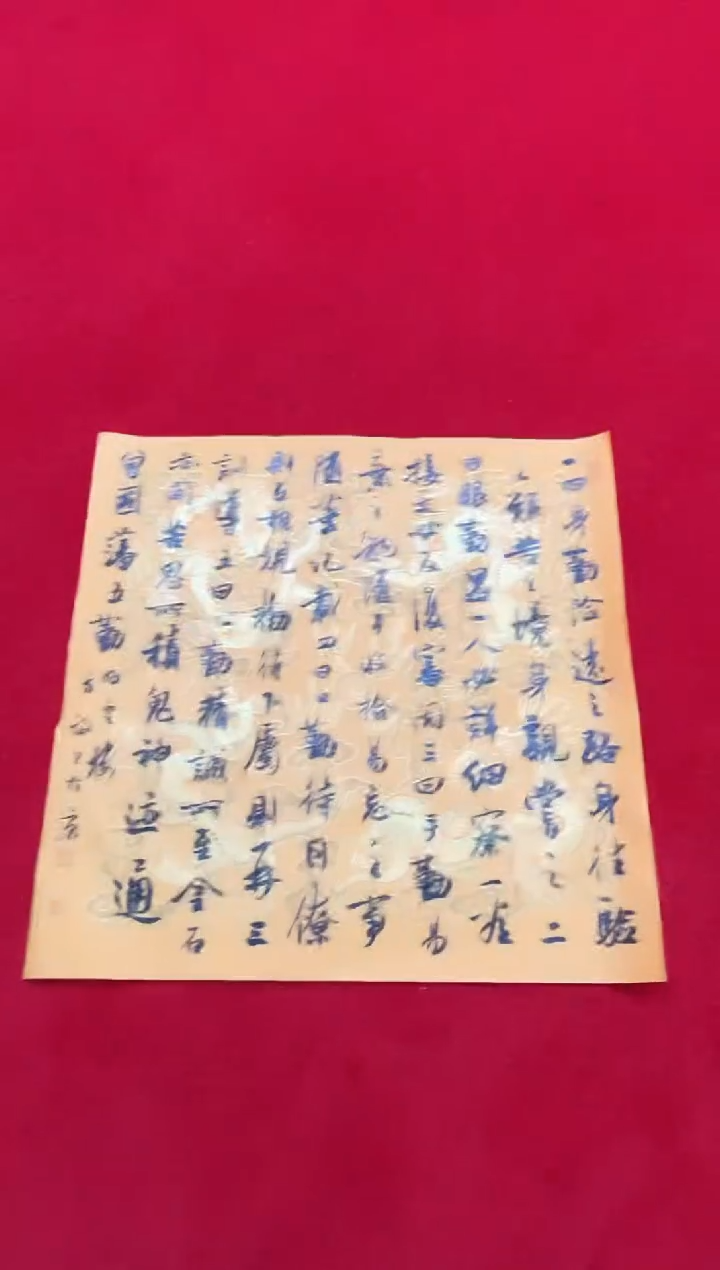 一曰身勤险遠之路身往验
之艱苦之境身親嘗之二
曰眼勤遇一人必詳細察看
接一文必反復審閱三曰手勤易
棄之物隨手收拾易忘之事
隨筆記載四曰口勤待同僚
則互相規勸待下屬則再三
訓導五曰心勤精誠所至金石
亦開苦思所積鬼神迹通
曾國藩五勤